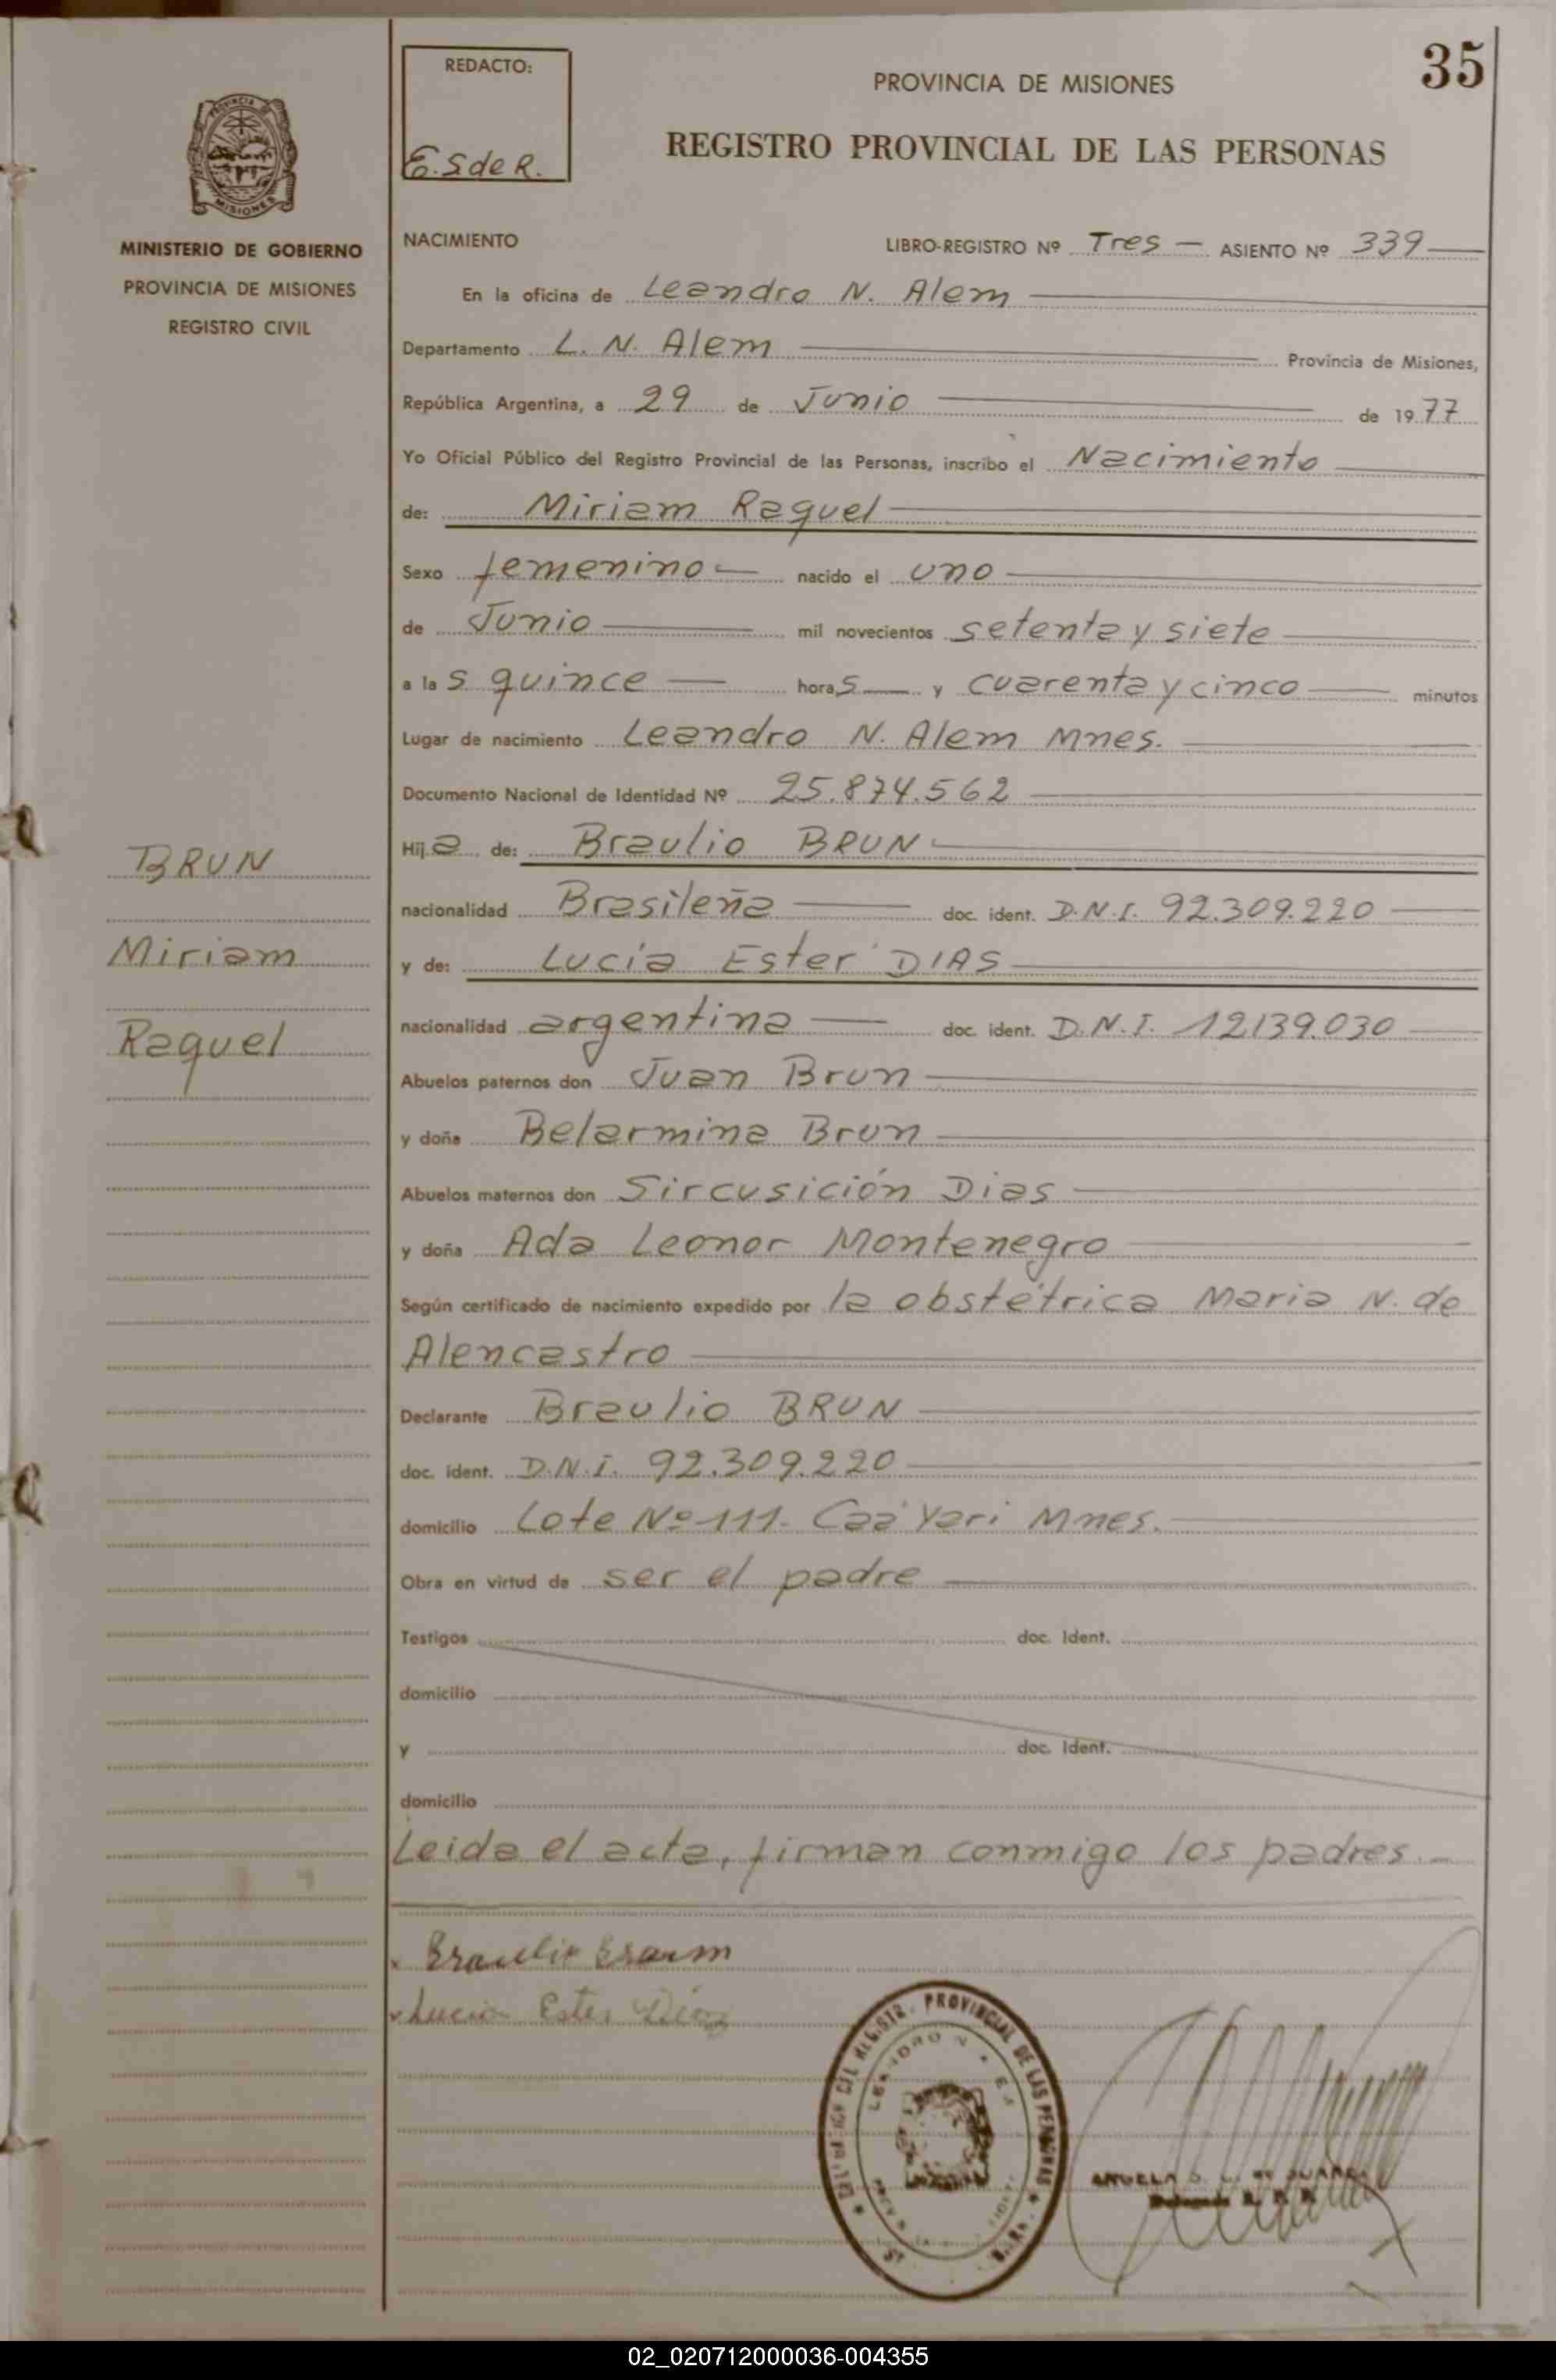 35
REDACTO:
E.S de R.
PROVINCIA DE MISIONES
REGISTRO PROVINCIAL DE LAS PERSONAS
PROVINCIA DE
MISIONES
MINISTERIO DE GOBIERNO
PROVINCIA DE MISIONES
REGISTRO CIVIL
BRUN
Miriam
Raquel
NACIMIENTO LIBRO-REGISTRO Nº Tres — ASIENTO Nº 339
En la oficina de Leandro N. Alem
Departamento L. N. Alem Provincia de Misiones,
República Argentina, a 29 de Junio de 1977
Yo Oficial Público del Registro Provincial de las Personas, inscribo el Nacimiento
de: Miriam Raquel
Sexo femenino nacido el uno
de Junio mil novecientos setenta y siete
a las quince horas y cuarenta y cinco minutos
Lugar de nacimiento Leandro N. Alem Mnes.
Documento Nacional de Identidad Nº 25.874.562
Hija de: Braulio BRUN
nacionalidad Brasileña doc. ident. D.N.I. 92.309.220
y de: Lucia Ester DIAS
nacionalidad argentina doc. ident. D.N.I. 12.139.030
Abuelos paternos don Juan Brun
y doña Belarmina Brun
Abuelos maternos don Sircusición Dias
y doña Ada Leonor Montenegro
Según certificado de nacimiento expedido por la obstétrica Maria N. de
Alencastro
Declarante Braulio BRUN
doc. ident. D.N.I. 92.309.220
domicilio Lote Nº 111. Caá Yari Mnes.
Obra en virtud de ser el padre
Testigos doc. ident.
domicilio
y doc. ident.
domicilio
Leida el acta, firman conmigo los padres.-
Lucia Ester
PROVINCIAL DE LAS PERSONAS